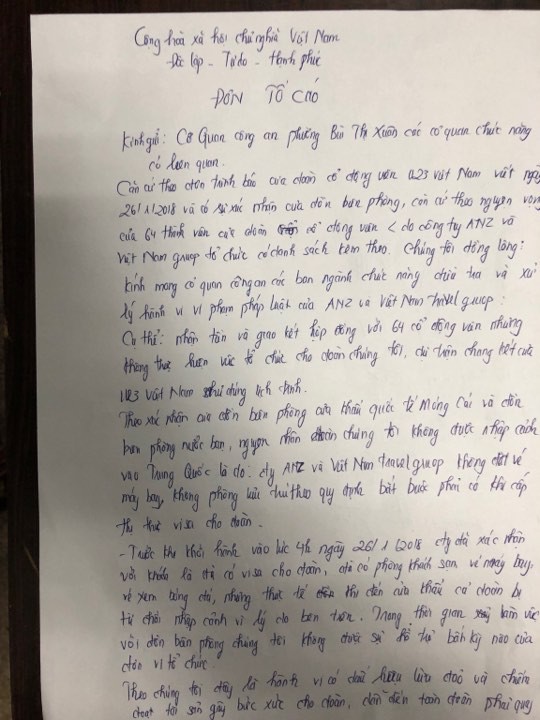 Cộng hoà xã hội chủ nghĩa Việt Nam
Độc lập - Tự do - Hạnh phúc
ĐƠN TỐ CÁO
Kính gửi: Cơ Quan công an phường Bùi Thị Xuân các cơ quan chức năng
có liên quan.
Căn cứ theo đơn trình báo của đoàn cổ động viên U23 Việt Nam viết ngày
26/1/2018 và có sự xác nhận của đồn biên phòng, căn cứ theo nguyện vọng
của 64 thành viên của đoàn cổ động viên < do công ty ANZ và
Việt Nam gruop tổ chức có danh sách kèm theo. Chúng tôi đồng lòng:
Kính mong cơ quan công an các ban ngành chức năng điều tra và xử
lý hành vi vi phạm pháp luật của ANZ và Việt Nam trivel gruop:
Cụ thể: nhận tiền và giao kết hợp đồng với 64 cổ động viên nhưng
không thực hiện việc tổ chức cho đoàn chúng tôi, dự trận chung kết của
U23 Việt Nam đúng lịch trình.
Theo xác nhận của đồn biên phòng cửa khẩu quốc tế Móng Cái và đồn
biên phòng nước bạn, nguyên nhân đoàn chúng tôi không được nhập cảnh
vào Trung Quốc là do: cty ANZ và Việt Nam travel gruop không đặt vé
máy bay, không phòng lưu trú theo quy định bắt buộc phải có khi cấp
thị thực visa cho đoàn.
- Trước khi khởi hành vào lúc 4h ngày 26/1/2018 cty đã xác nhận
với khách là đã có visa cho đoàn, đã có phòng khách sạn vé máy bay,
vé xem bóng đá, nhưng thực tế khi đến cửa khẩu cả đoàn bị
từ chối nhập cảnh vì lý do bên trên. Trong thời gian làm việc
với đồn biên phòng chúng tôi không được sự hỗ trợ bất kỳ nào của
đơn vị tổ chức.
Theo chúng tôi đây là hành vi có dấu hiệu lừa đảo và chiếm
đoạt tài sản gây bức xúc cho đoàn, dẫn đến toàn đoàn phải quay